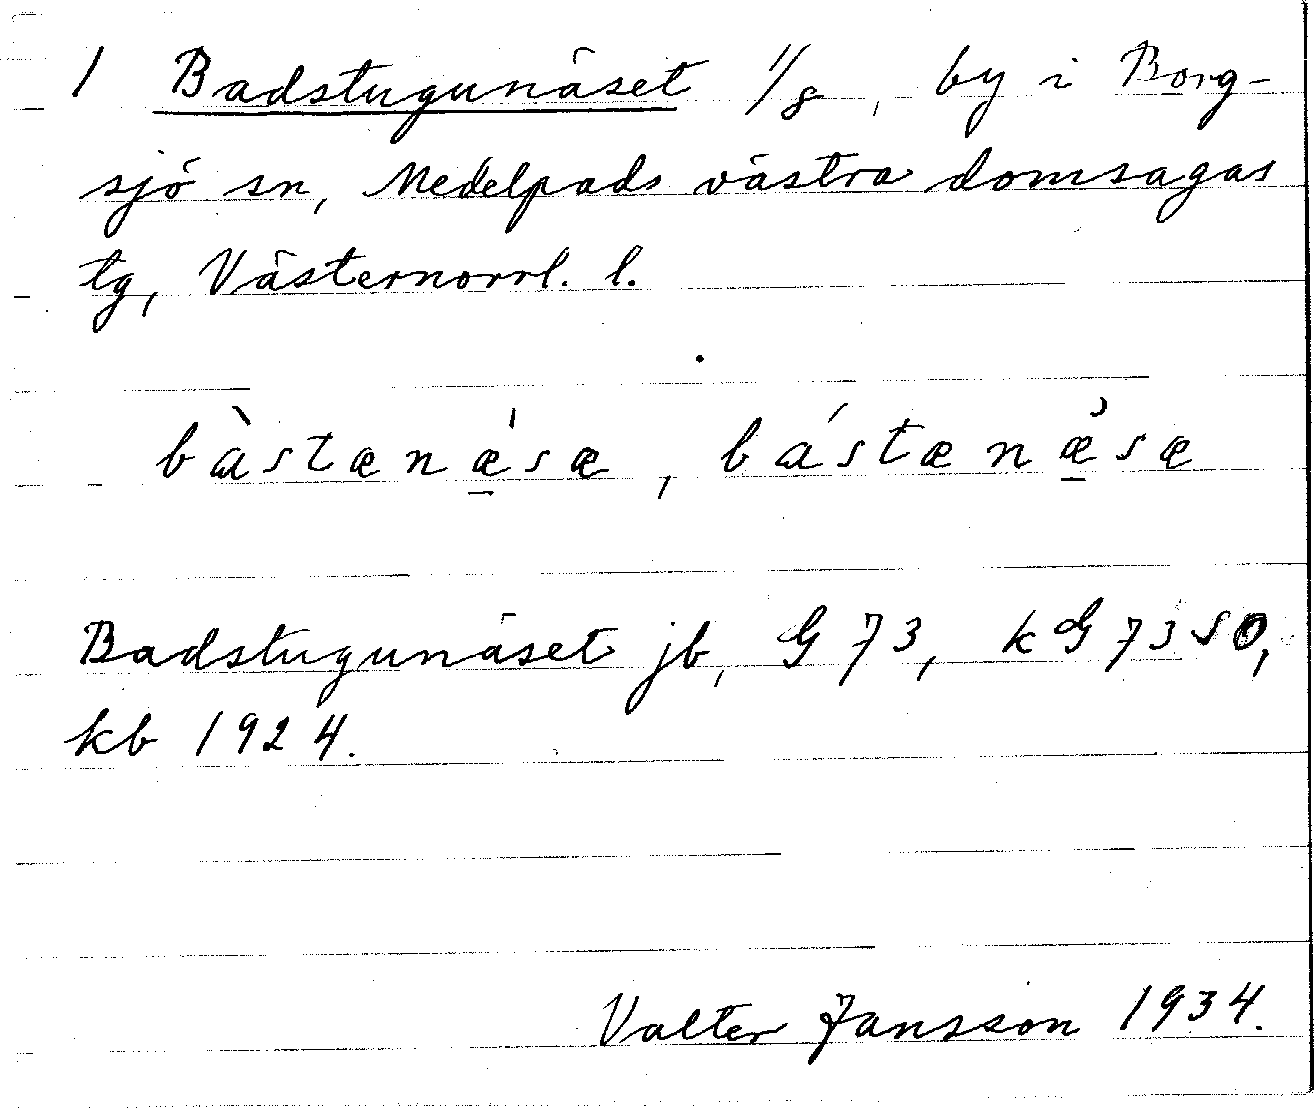 1 Badstugunäset 1/8, by i Borg-
sjö sn, Medelpads västra domsagas
tg, Västernorrl. l.
bàstænæ̱̍sæ, bástænæ̱̉sæ
Badstugunäset jb, G 73, kG 73 SO,
kb 1924.
Valter Jansson 1934.